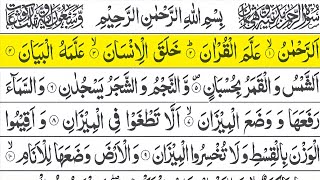 بِسْمِ اللهِ الرَّحْمٰنِ الرَّحِيْمِ
اَلرَّحْمٰنُ ۙ﴿۱﴾ عَلَّمَ الْقُرْاٰنَ ؕ﴿۲﴾ خَلَقَ الْاِنْسَانَ ۙ﴿۳﴾ عَلَّمَهُ الْبَيَانَ ﴿۴﴾
اَلشَّمْسُ وَ الْقَمَرُ بِحُسْبَانٍ ۪﴿۵﴾ وَّ النَّجْمُ وَ الشَّجَرُ يَسْجُدٰنِ ﴿۶﴾ وَ السَّمَآءَ
رَفَعَهَا وَ وَضَعَ الْمِيْزَانَ ۙ﴿۷﴾ اَلَّا تَطْغَوْا فِي الْمِيْزَانِ ﴿۸﴾ وَ اَقِيْمُوا
الْوَزْنَ بِالْقِسْطِ وَ لَا تُخْسِرُوا الْمِيْزَانَ ﴿۹﴾ وَ الْاَرْضَ وَضَعَهَا لِلْاَنَامِ ۙ﴿۱۰﴾